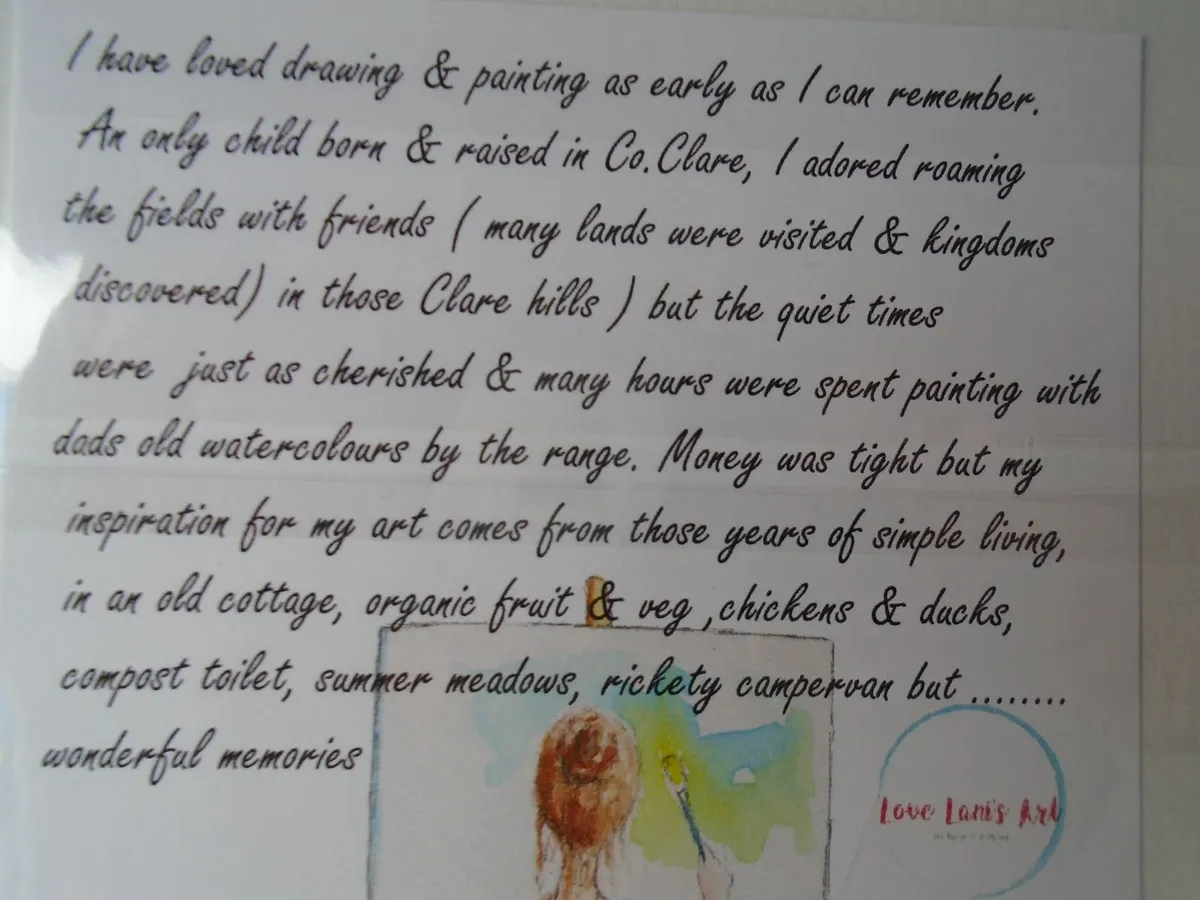 I have loved drawing & painting as early as I can remember.
An only child born & raised in Co.Clare, I adored roaming
the fields with friends ( many lands were visited & kingdoms
discovered) in those Clare hills ) but the quiet times
were just as cherished & many hours were spent painting with
dads old watercolours by the range. Money was tight but my
inspiration for my art comes from those years of simple living,
in an old cottage, organic fruit & veg ,chickens & ducks,
compost toilet, summer meadows, rickety campervan but ........
wonderful memories
Love Lani's Art